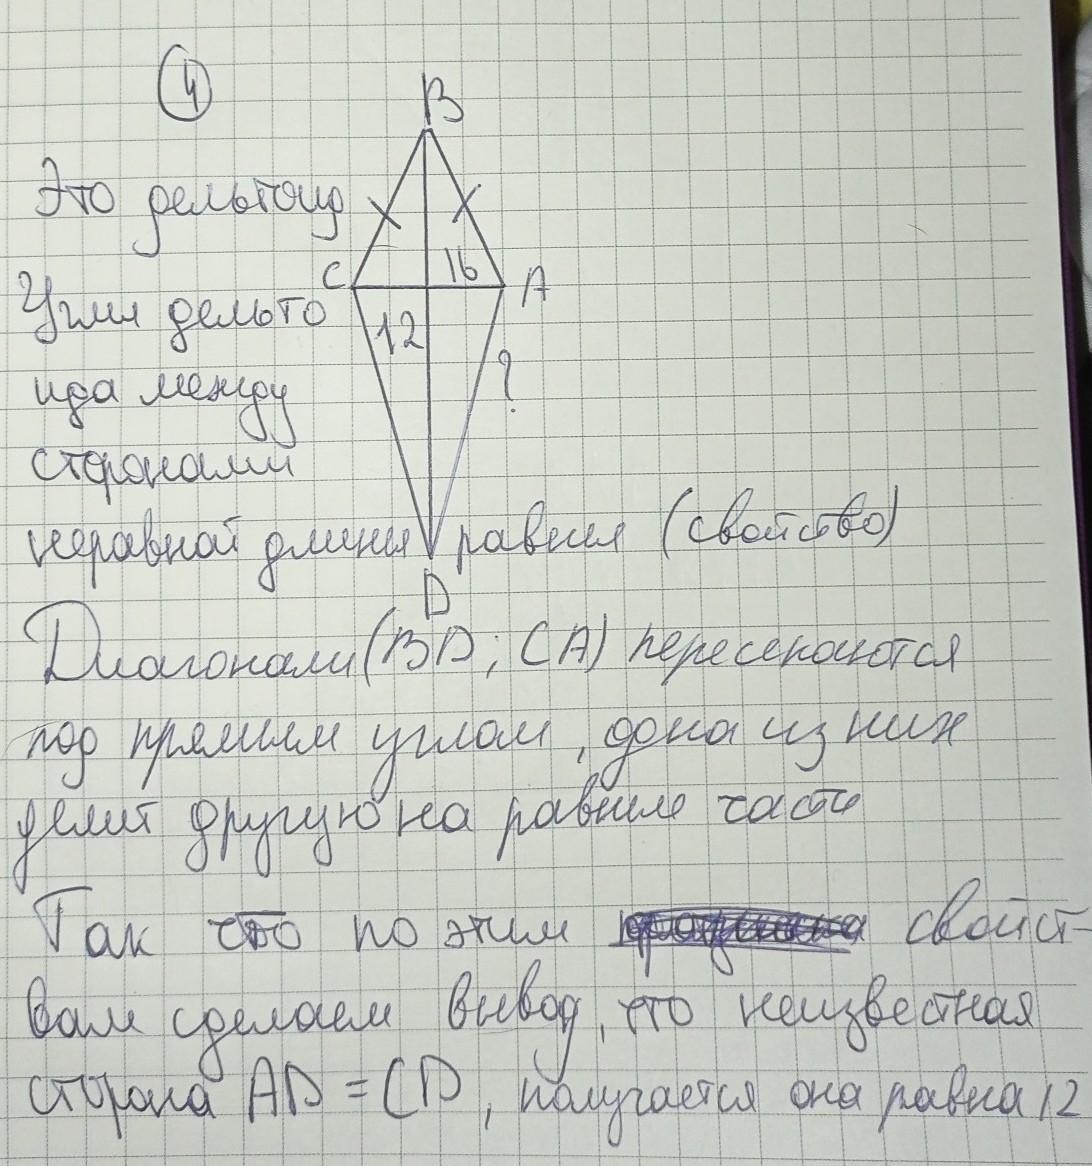 4
B
Это дельтоид
16
C
A
Углы дельто
12
ида между
?
сторонами
неравной длины равны (свойство)
D
Диагонали (BD; CA) пересекаются
под прямым углом, одна из них
делит другую на равные части
Так что по этим свойст-
вам сделаем вывод, что неизвестная
сторона AD = CD, получается она равна 12